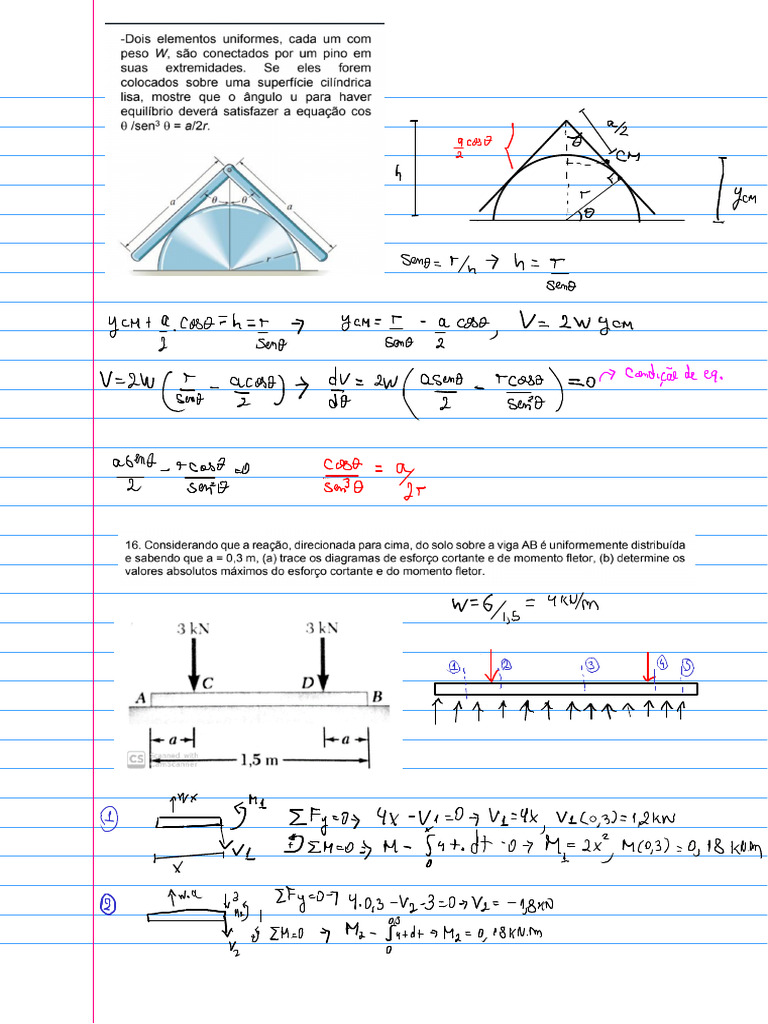 -Dois elementos uniformes, cada um com
peso W, são conectados por um pino em
suas extremidades. Se eles forem
colocados sobre uma superfície cilíndrica
lisa, mostre que o ângulo u para haver
equilíbrio deverá satisfazer a equação cos
θ /sen³ θ = a/2r.
a
θ
θ
a
r
a/2
θ
a/2 cosθ
CM
h
r
θ
yCM
Senθ = r/h → h = r/senθ
yCM + a/2 . cosθ = h = r/senθ → yCM = r/senθ - a/2 cosθ, V = 2W yCM
V = 2W (r/senθ - a cosθ/2) → dV/dθ = 2W (a senθ/2 - r cosθ/sen²θ) = 0 → Condição de eq.
a senθ/2 - r cosθ/sen²θ = 0
cosθ/sen³θ = a/2r
16. Considerando que a reação, direcionada para cima, do solo sobre a viga AB é uniformemente distribuída
e sabendo que a = 0,3 m, (a) trace os diagramas de esforço cortante e de momento fletor, (b) determine os
valores absolutos máximos do esforço cortante e do momento fletor.
W = 6/1,5 = 4 kN/m
3 kN
3 kN
A
C
D
B
a
a
1,5 m
CS Scanned with
CamScanner
1
2
3
4
5
1
Wx
M1
V1
x
ΣFy=0 → 4x - V1 = 0 → V1 = 4x, V1(0,3) = 1,2 kN
ΣM=0 → M - ∫0 x 4t.dt = 0 → M1 = 2x², M(0,3) = 0,18 kN.m
2
W.a
3
M2
V2
ΣFy=0 → 4.0,3 - V2 - 3 = 0 → V2 = -1,8 kN
ΣM=0 → M2 - ∫0 0,3 4t dt → M2 = 0,18 kN.m